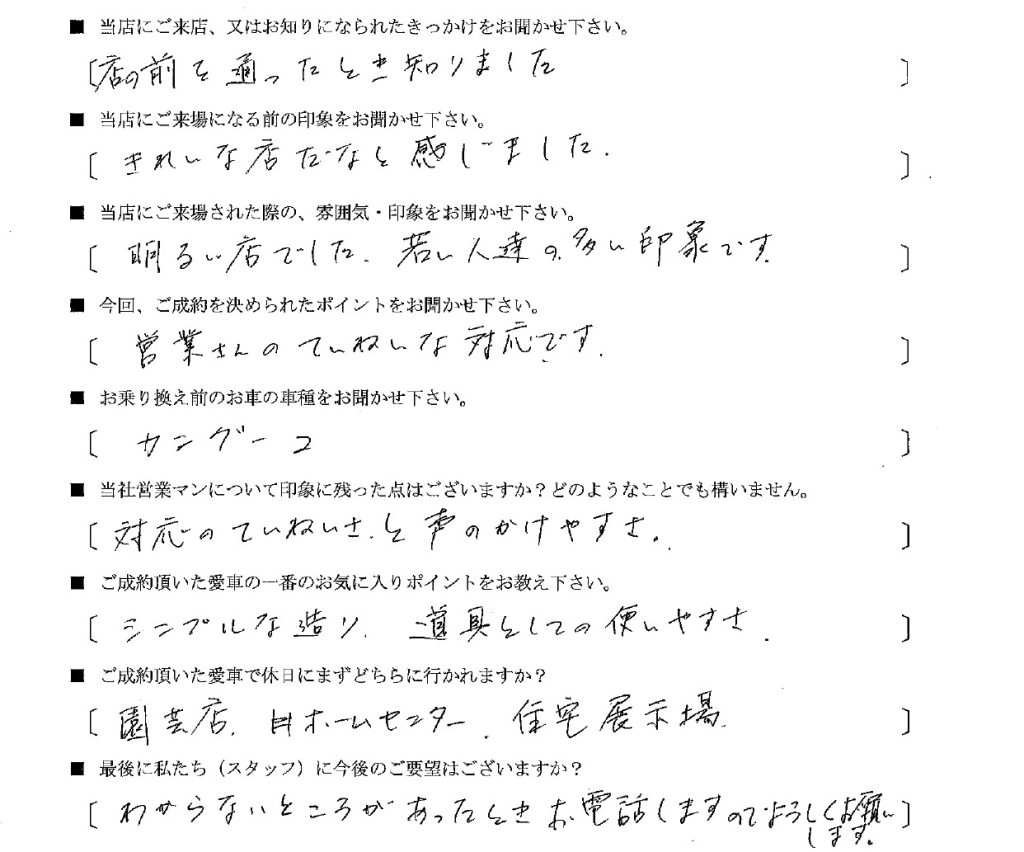 ■ 当店にご来店、又はお知りになられたきっかけをお聞かせ下さい。
[店の前を通ったとき知りました]
■ 当店にご来場になる前の印象をお聞かせ下さい。
[きれいな店だなと感じました.]
■ 当店にご来場された際の、雰囲気・印象をお聞かせ下さい。
[明るい店でした. 若い人達の多い印象です.]
■ 今回、ご成約を決められたポイントをお聞かせ下さい。
[営業さんのていねいな対応です.]
■ お乗り換え前のお車の車種をお聞かせ下さい。
[カングーコ]
■ 当社営業マンについて印象に残った点はございますか？どのようなことでも構いません。
[対応のていねいさ.と声のかけやすさ.]
■ ご成約頂いた愛車の一番のお気に入りポイントをお教え下さい。
[シンプルな造り. 道具としての使いやすさ.]
■ ご成約頂いた愛車で休日にまずどちらに行かれますか？
[園芸店. ホームセンター. 住宅展示場.]
■ 最後に私たち（スタッフ）に今後のご要望はございますか？
[わからないところがあったときお電話しますのでよろしくお願い
します。]